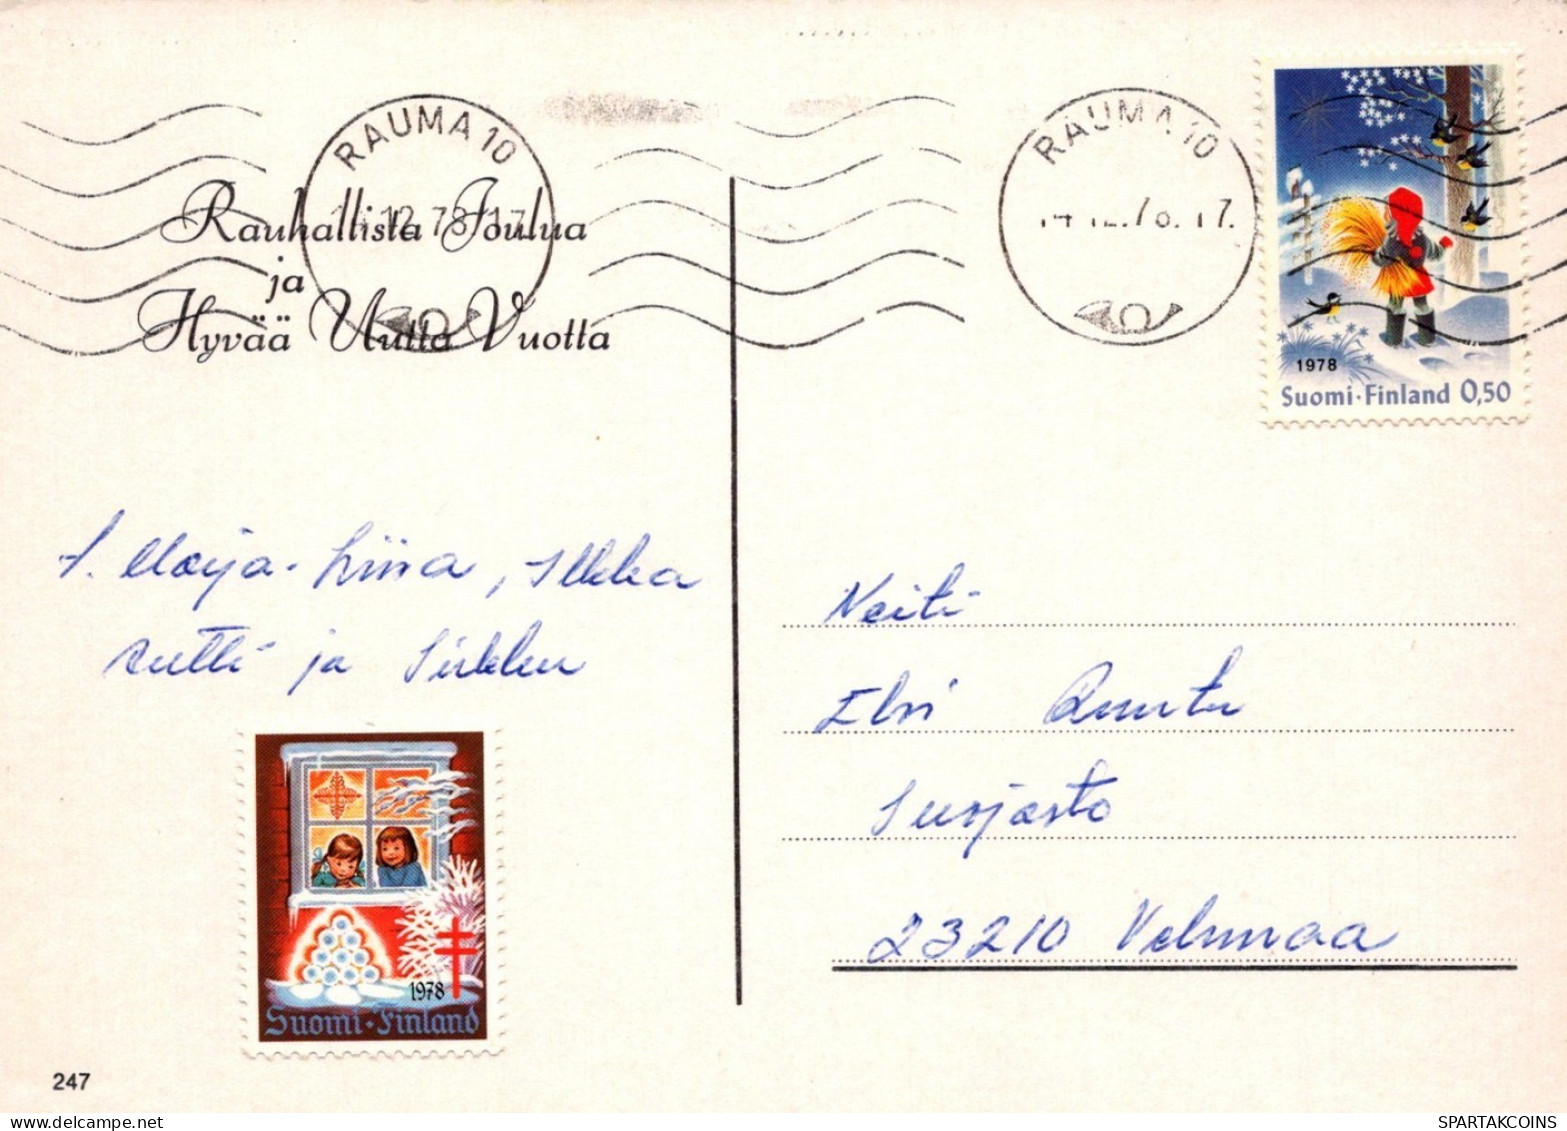 RAUMA 10
14.12.78.17
Rauhallista Joulua
ja
Hyvää Uutta Vuotta
RAUMA 10
14.12.78.17.
1978
Suomi·Finland 0,50
T. Marja-Liisa, Ilkka
Antti ja Sirkku
Neiti
Elvi Ruutu
Surjasto
23210 Velmaa
1978
Suomi·Finland
247
SPARTAKCOINS